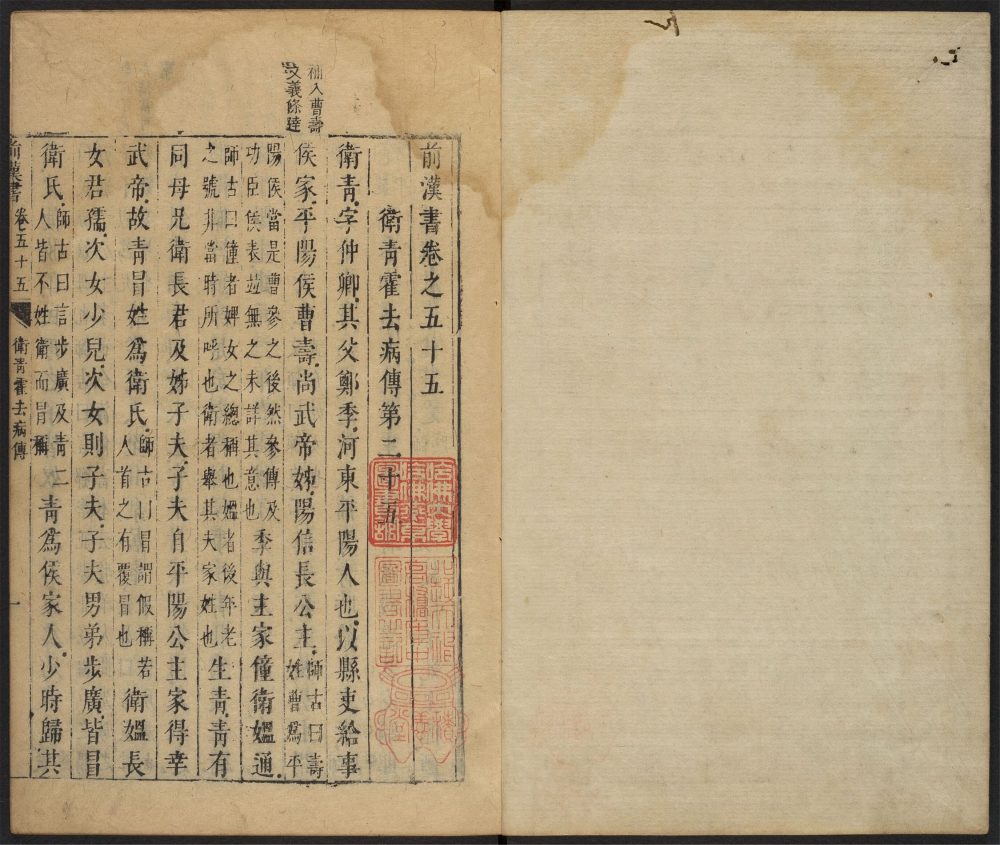 祕入曹壽
文義條達
前漢書卷之五十五
衛青霍去病傳第二十五
衛青字仲卿其父鄭季河東平陽人也以縣吏給事
侯家平陽侯曹壽尚武帝姊陽信長公主師古曰壽
姓曹爲平
陽侯當是曹參之後然參傳及
功臣侯表並無之未詳其意也季與主家僮衛媼通
師古曰僮者婢女之總稱也媼者後年老
之號非當時所呼也衛者舉其夫家姓也生青青有
同母兄衛長君及姊子夫子夫自平陽公主家得幸
武帝故青冒姓爲衛氏師古曰冒謂假稱若
人首之有覆冒也衛媼長
女君孺次女少兒次女則子夫子夫男弟步廣皆冒
衛氏師古曰言步廣及青二
人皆不姓衛而冒稱青爲侯家人少時歸其
前漢書 卷五十五 衛青霍去病傳 一
哈佛大學
哈佛燕京
圖書館